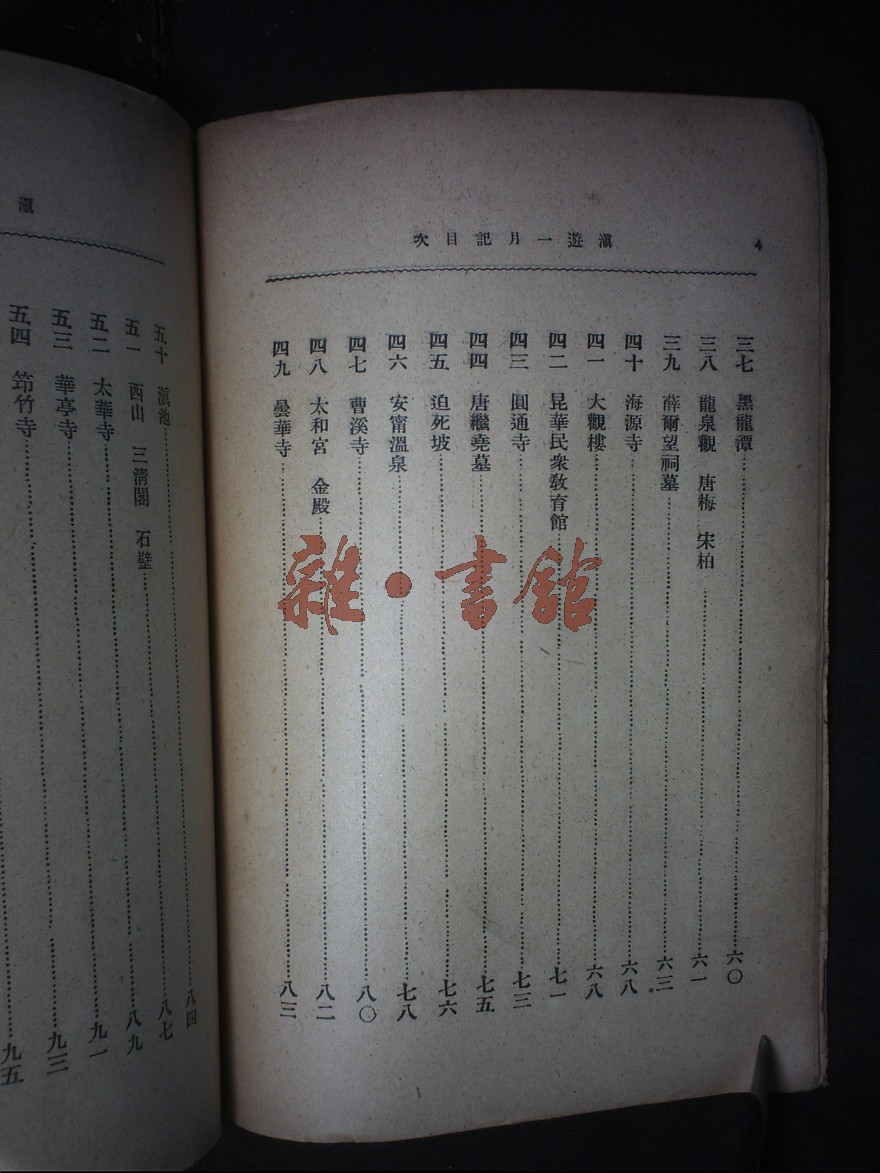 4
滇遊一月記目次
三七　黑龍潭……六〇
三八　龍泉觀　唐梅　宋柏……六一
三九　薛爾望祠墓……六三
四十　海源寺……六八
四一　大觀樓……六八
四二　昆華民衆教育館……七一
四三　圓通寺……七三
四四　唐繼堯墓……七五
四五　迫死坡……七六
四六　安甯溫泉……七八
四七　曹溪寺……八〇
四八　太和宮　金殿……八二
四九　曇華寺……八三
雜·書館
滇
五十　滇池……八四
五一　西山　三清閣　石壁……八七
五二　太華寺……八九
五三　華亭寺……九一
五四　筇竹寺……九三
九五